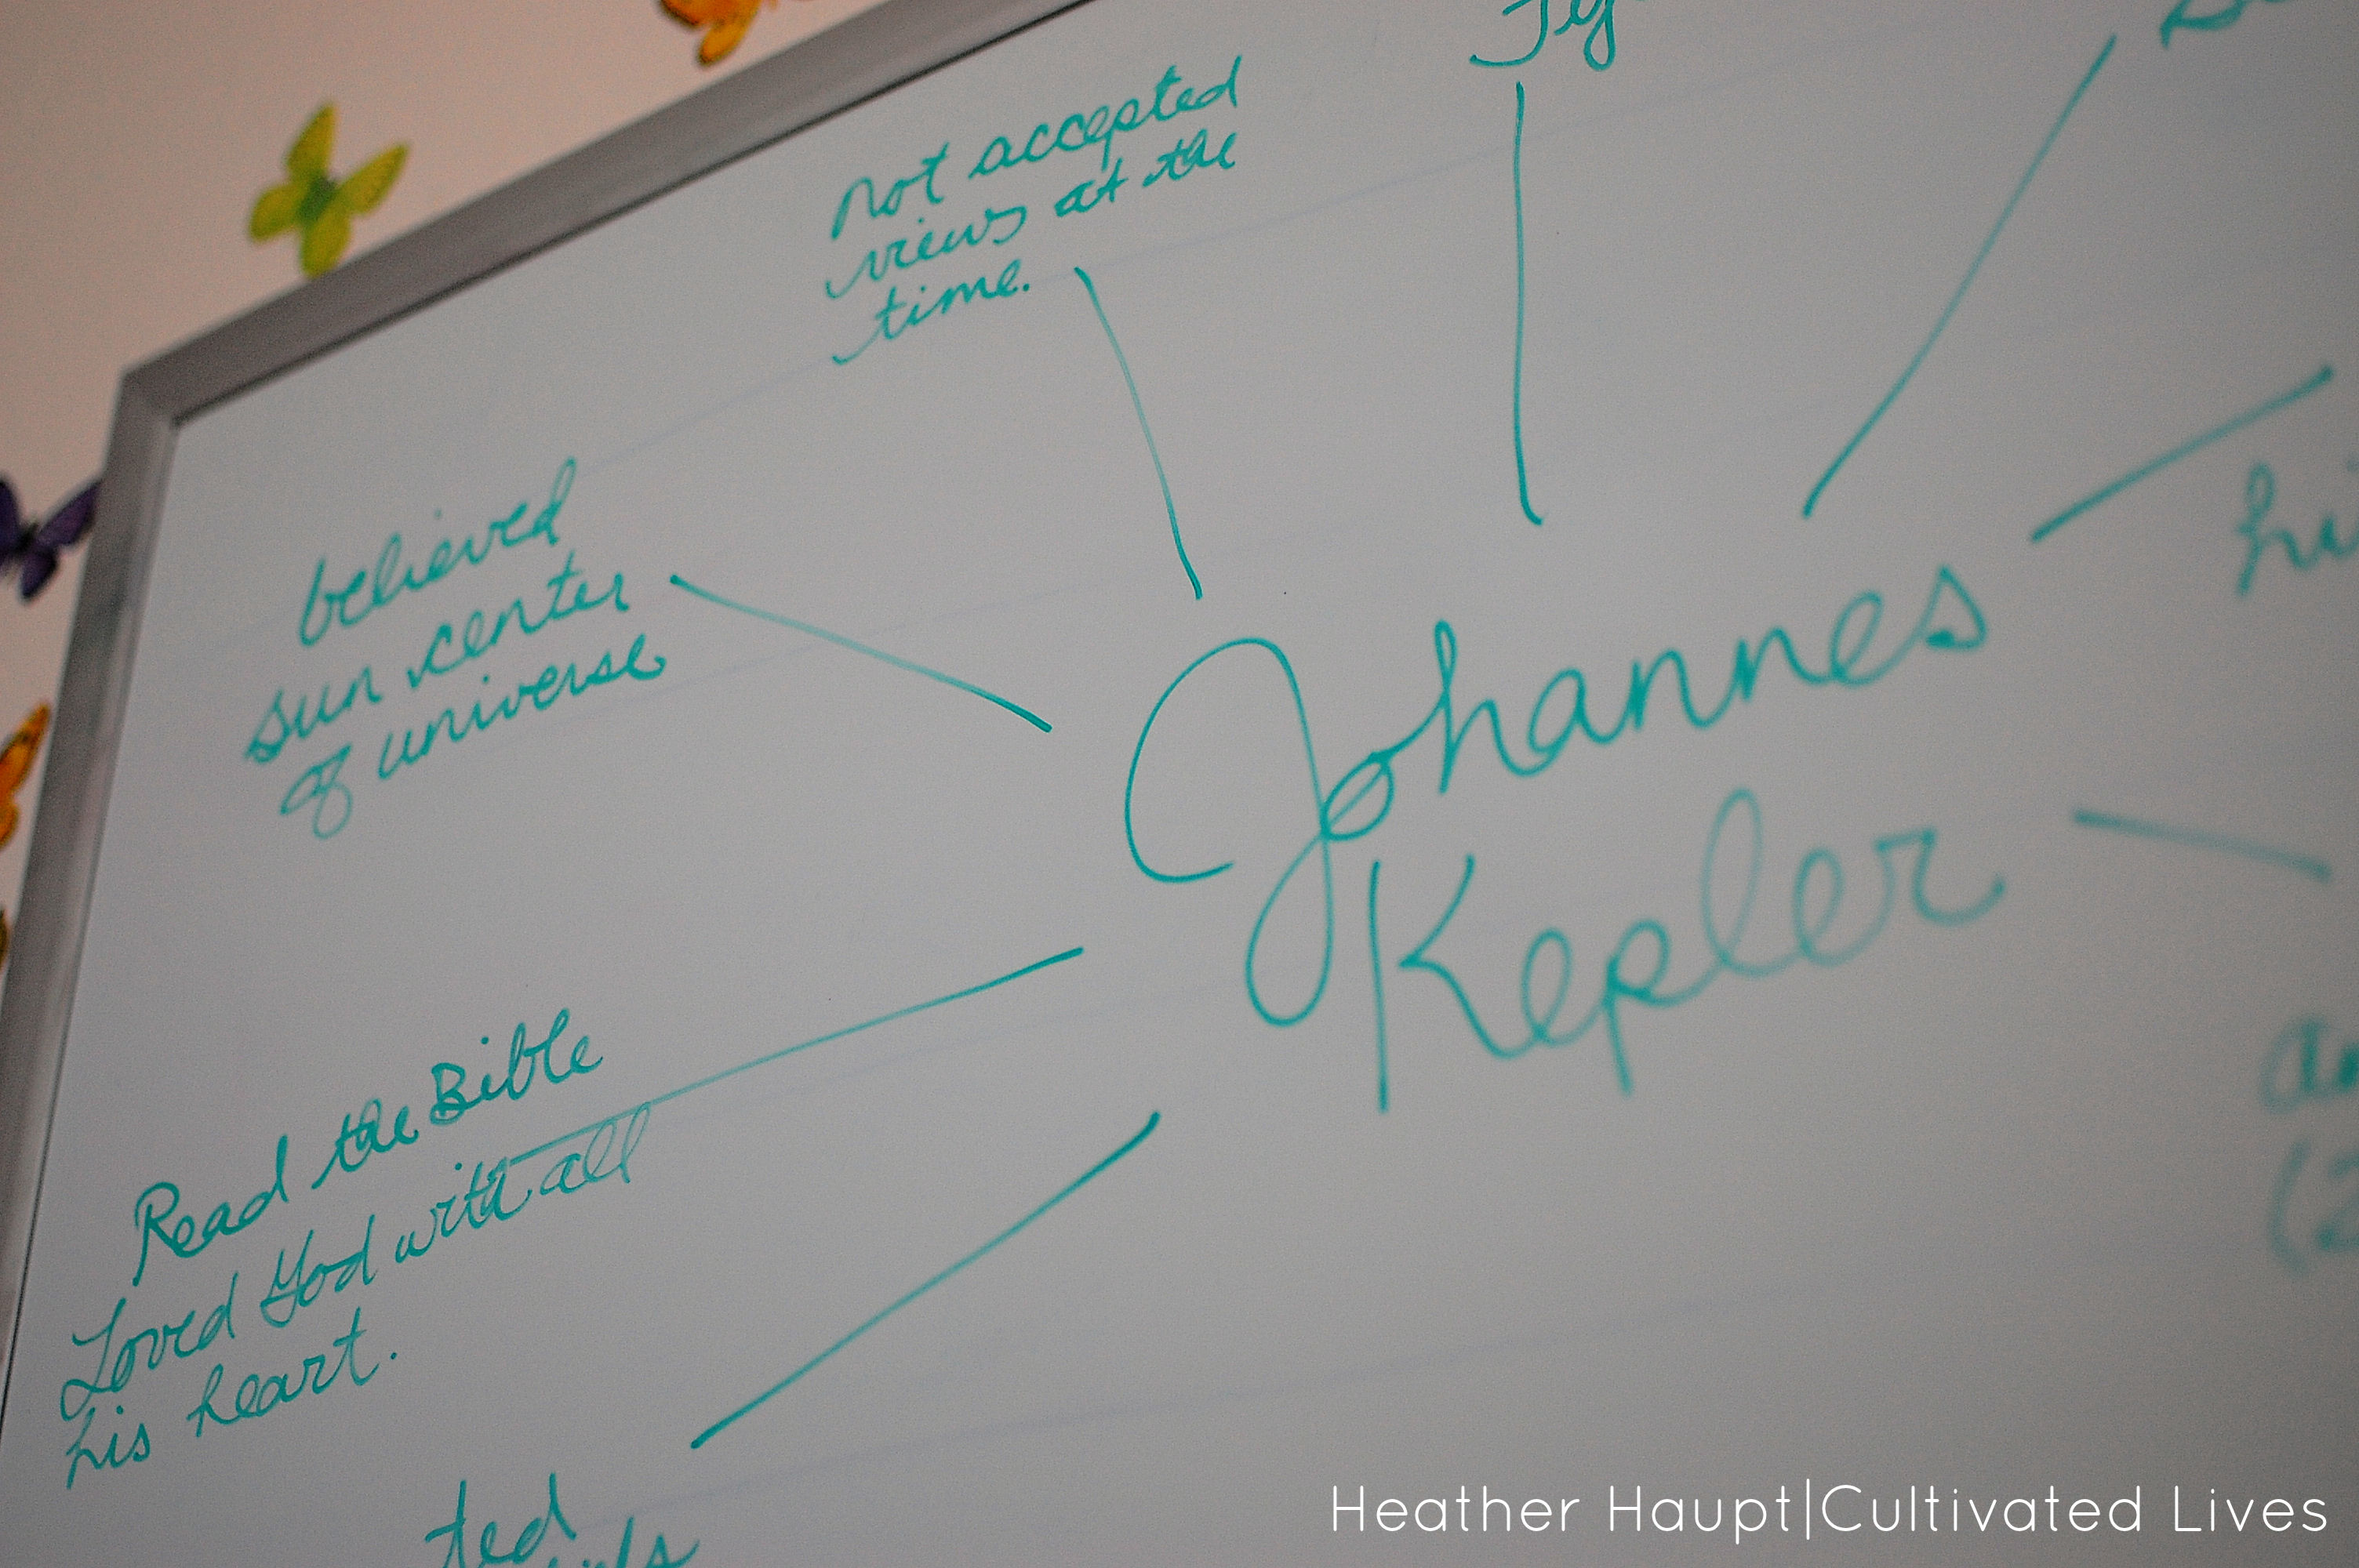 not accepted
views at the
time.
believed
sun center
of universe
Johannes
Kepler
Read the Bible
Loved God with all
his heart.
Heather Haupt|Cultivated Lives